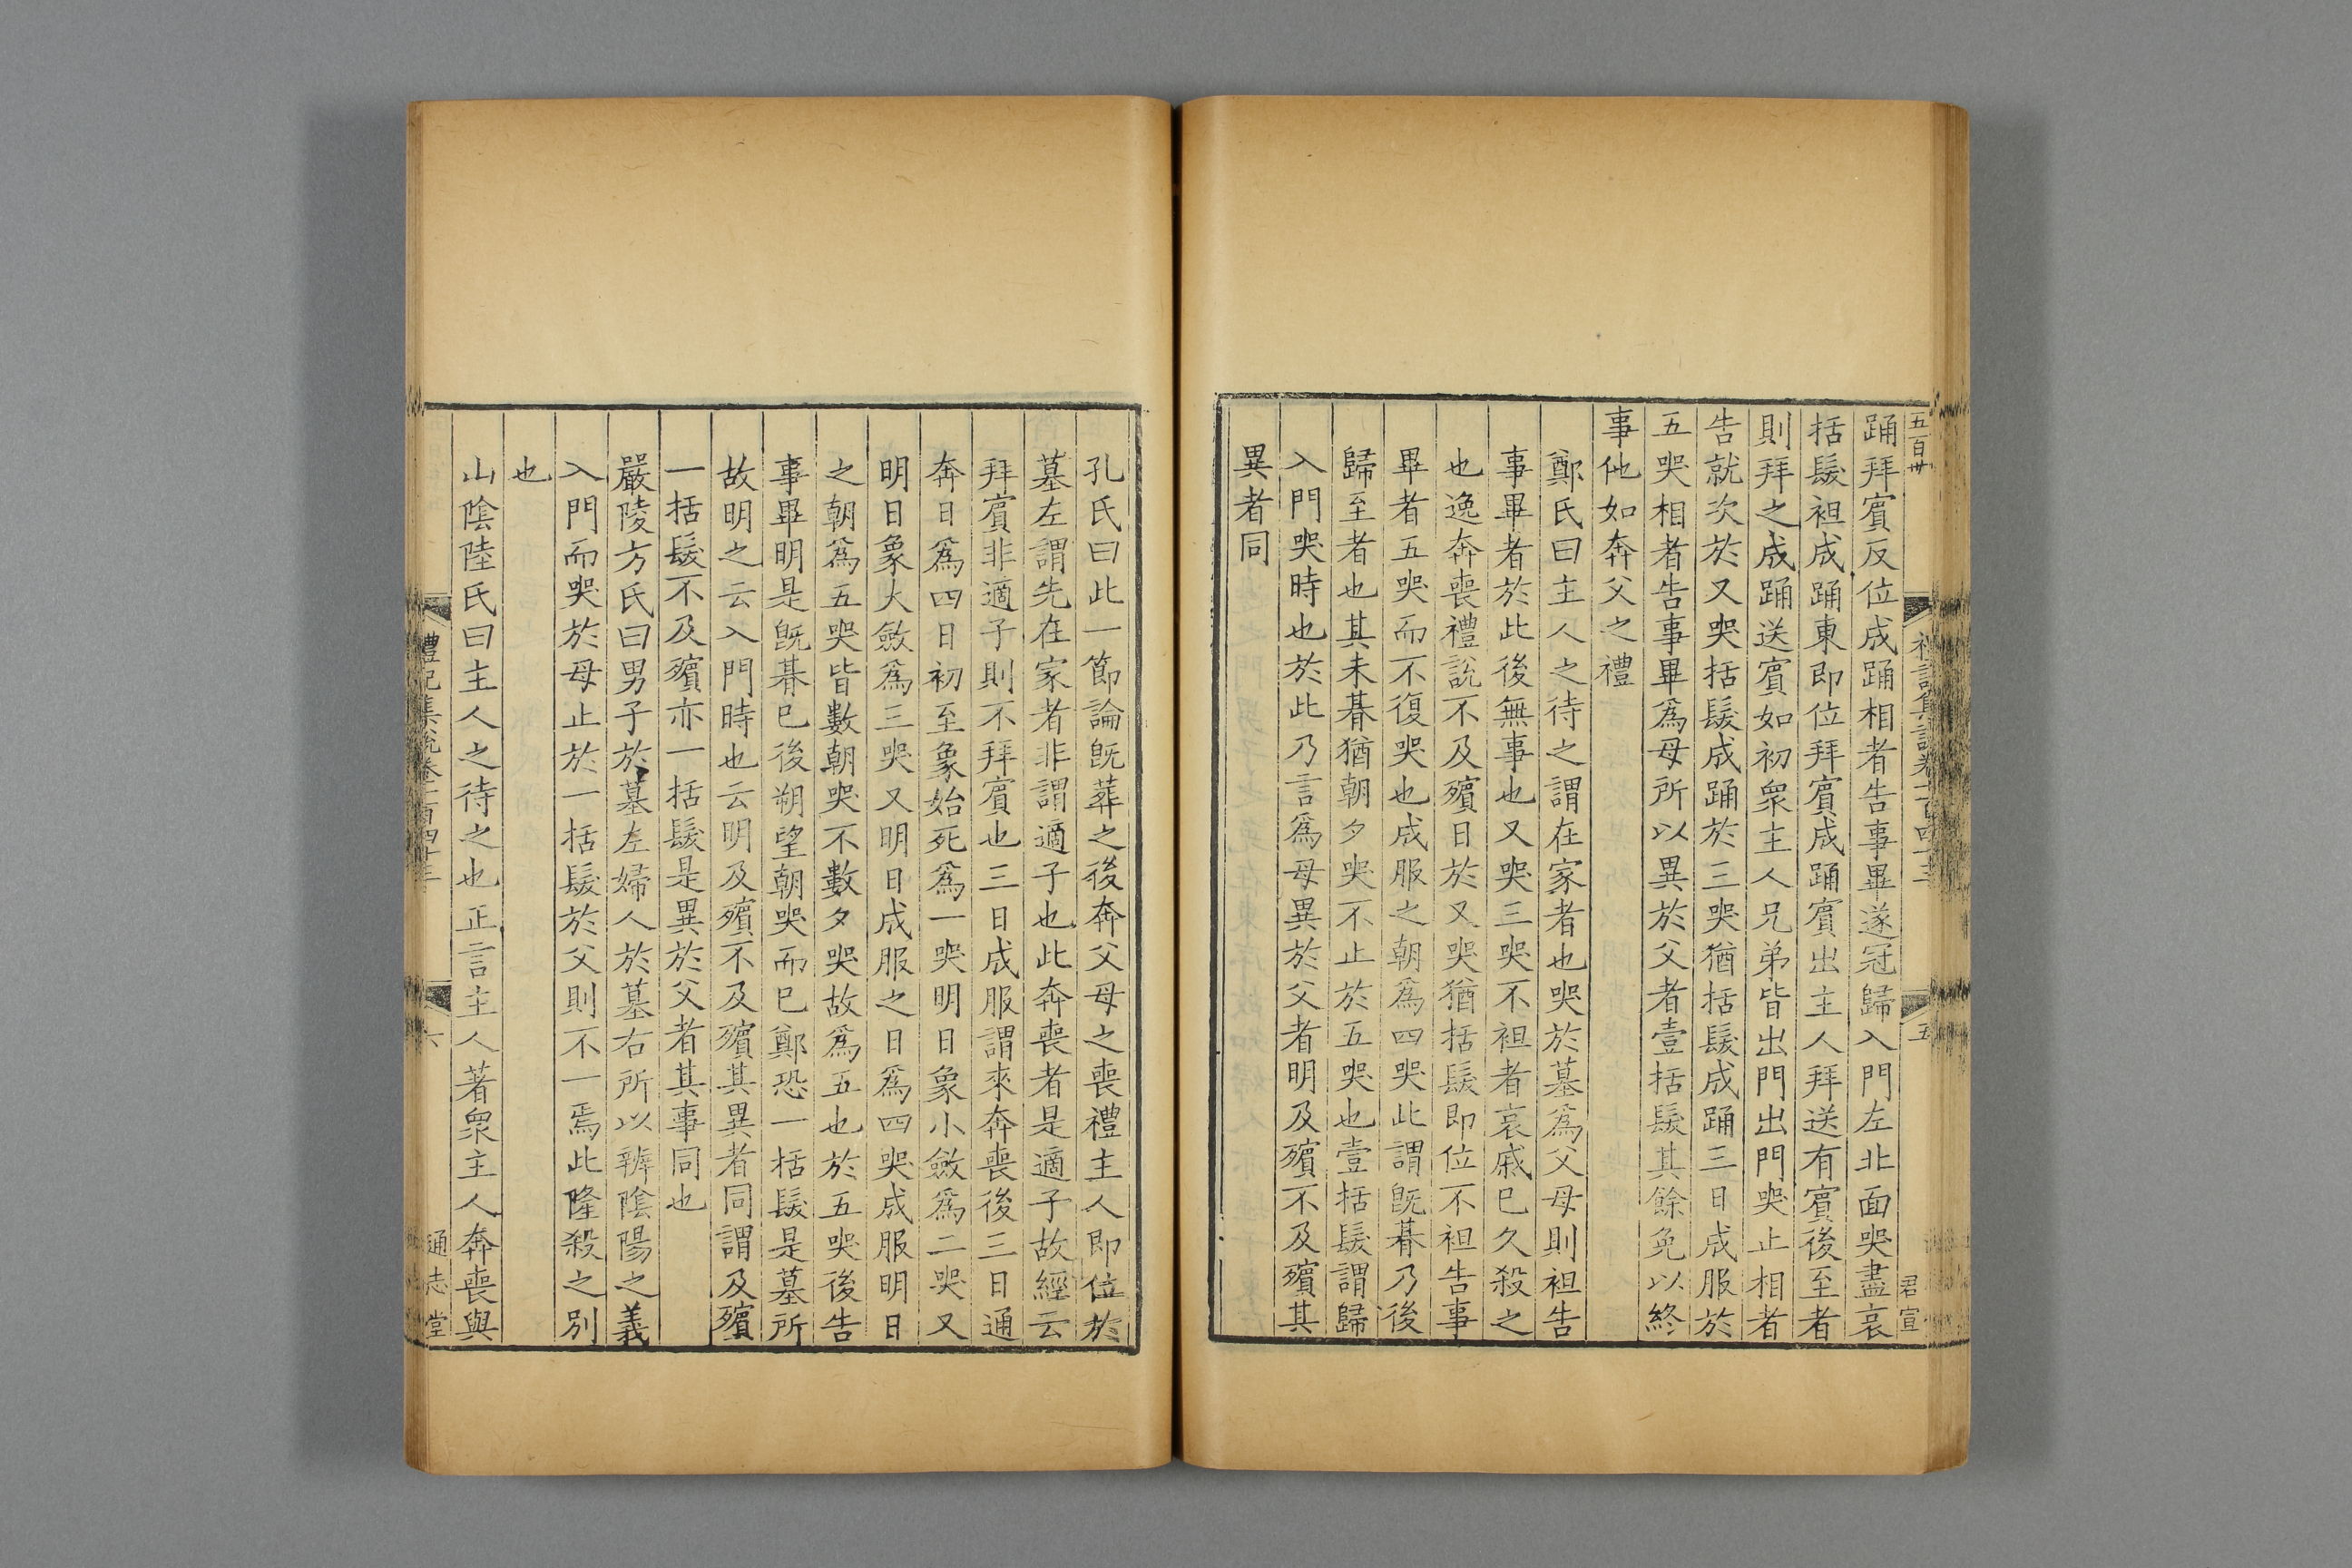 五百卅
五
君宣
踊拜賔反位成踊相者告事畢遂冠歸入門左北面哭盡哀
括髮袒成踊東即位拜賔成踊賔出主人拜送有賔後至者
則拜之成踊送賔如初衆主人兄弟皆出門出門哭止相者
告就次於又哭括髮成踊於三哭猶括髮成踊三日成服於
五哭相者告事畢爲母所以異於父者壹括髮其餘免以終
事他如奔父之禮
鄭氏曰主人之待之謂在家者也哭於墓爲父母則袒告
事畢者於此後無事也又哭三哭不袒者哀戚已久殺之
也逸奔喪禮説不及殯日於又哭猶括髮即位不袒告事
畢者五哭而不復哭也成服之朝爲四哭此謂旣朞乃後
歸至者也其未朞猶朝夕哭不止於五哭也壹括髮謂歸
入門哭時也於此乃言爲母異於父者明及殯不及殯其
異者同
孔氏曰此一節論旣葬之後奔父母之喪禮主人即位於
墓左謂先在家者非謂適子也此奔喪者是適子故經云
拜賔非適子則不拜賔也三日成服謂來奔喪後三日通
奔日爲四日初至象始死爲一哭明日象小斂爲二哭又
明日象大斂爲三哭又明日成服之日爲四哭成服明日
之朝爲五哭皆數朝哭不數夕哭故爲五也於五哭後告
事畢明是旣朞已後朔望朝哭而已鄭恐一括髮是墓所
故明之云入門時也云明及殯不及殯其異者同謂及殯
一括髮不及殯亦一括髮是異於父者其事同也
嚴陵方氏曰男子於墓左婦人於墓右所以辨隂陽之義
入門而哭於母止於一括髮於父則不一焉此隆殺之別
也
山隂陸氏曰主人之待之也正言主人著衆主人奔喪與
禮記集說卷一百四十三
六
通志堂